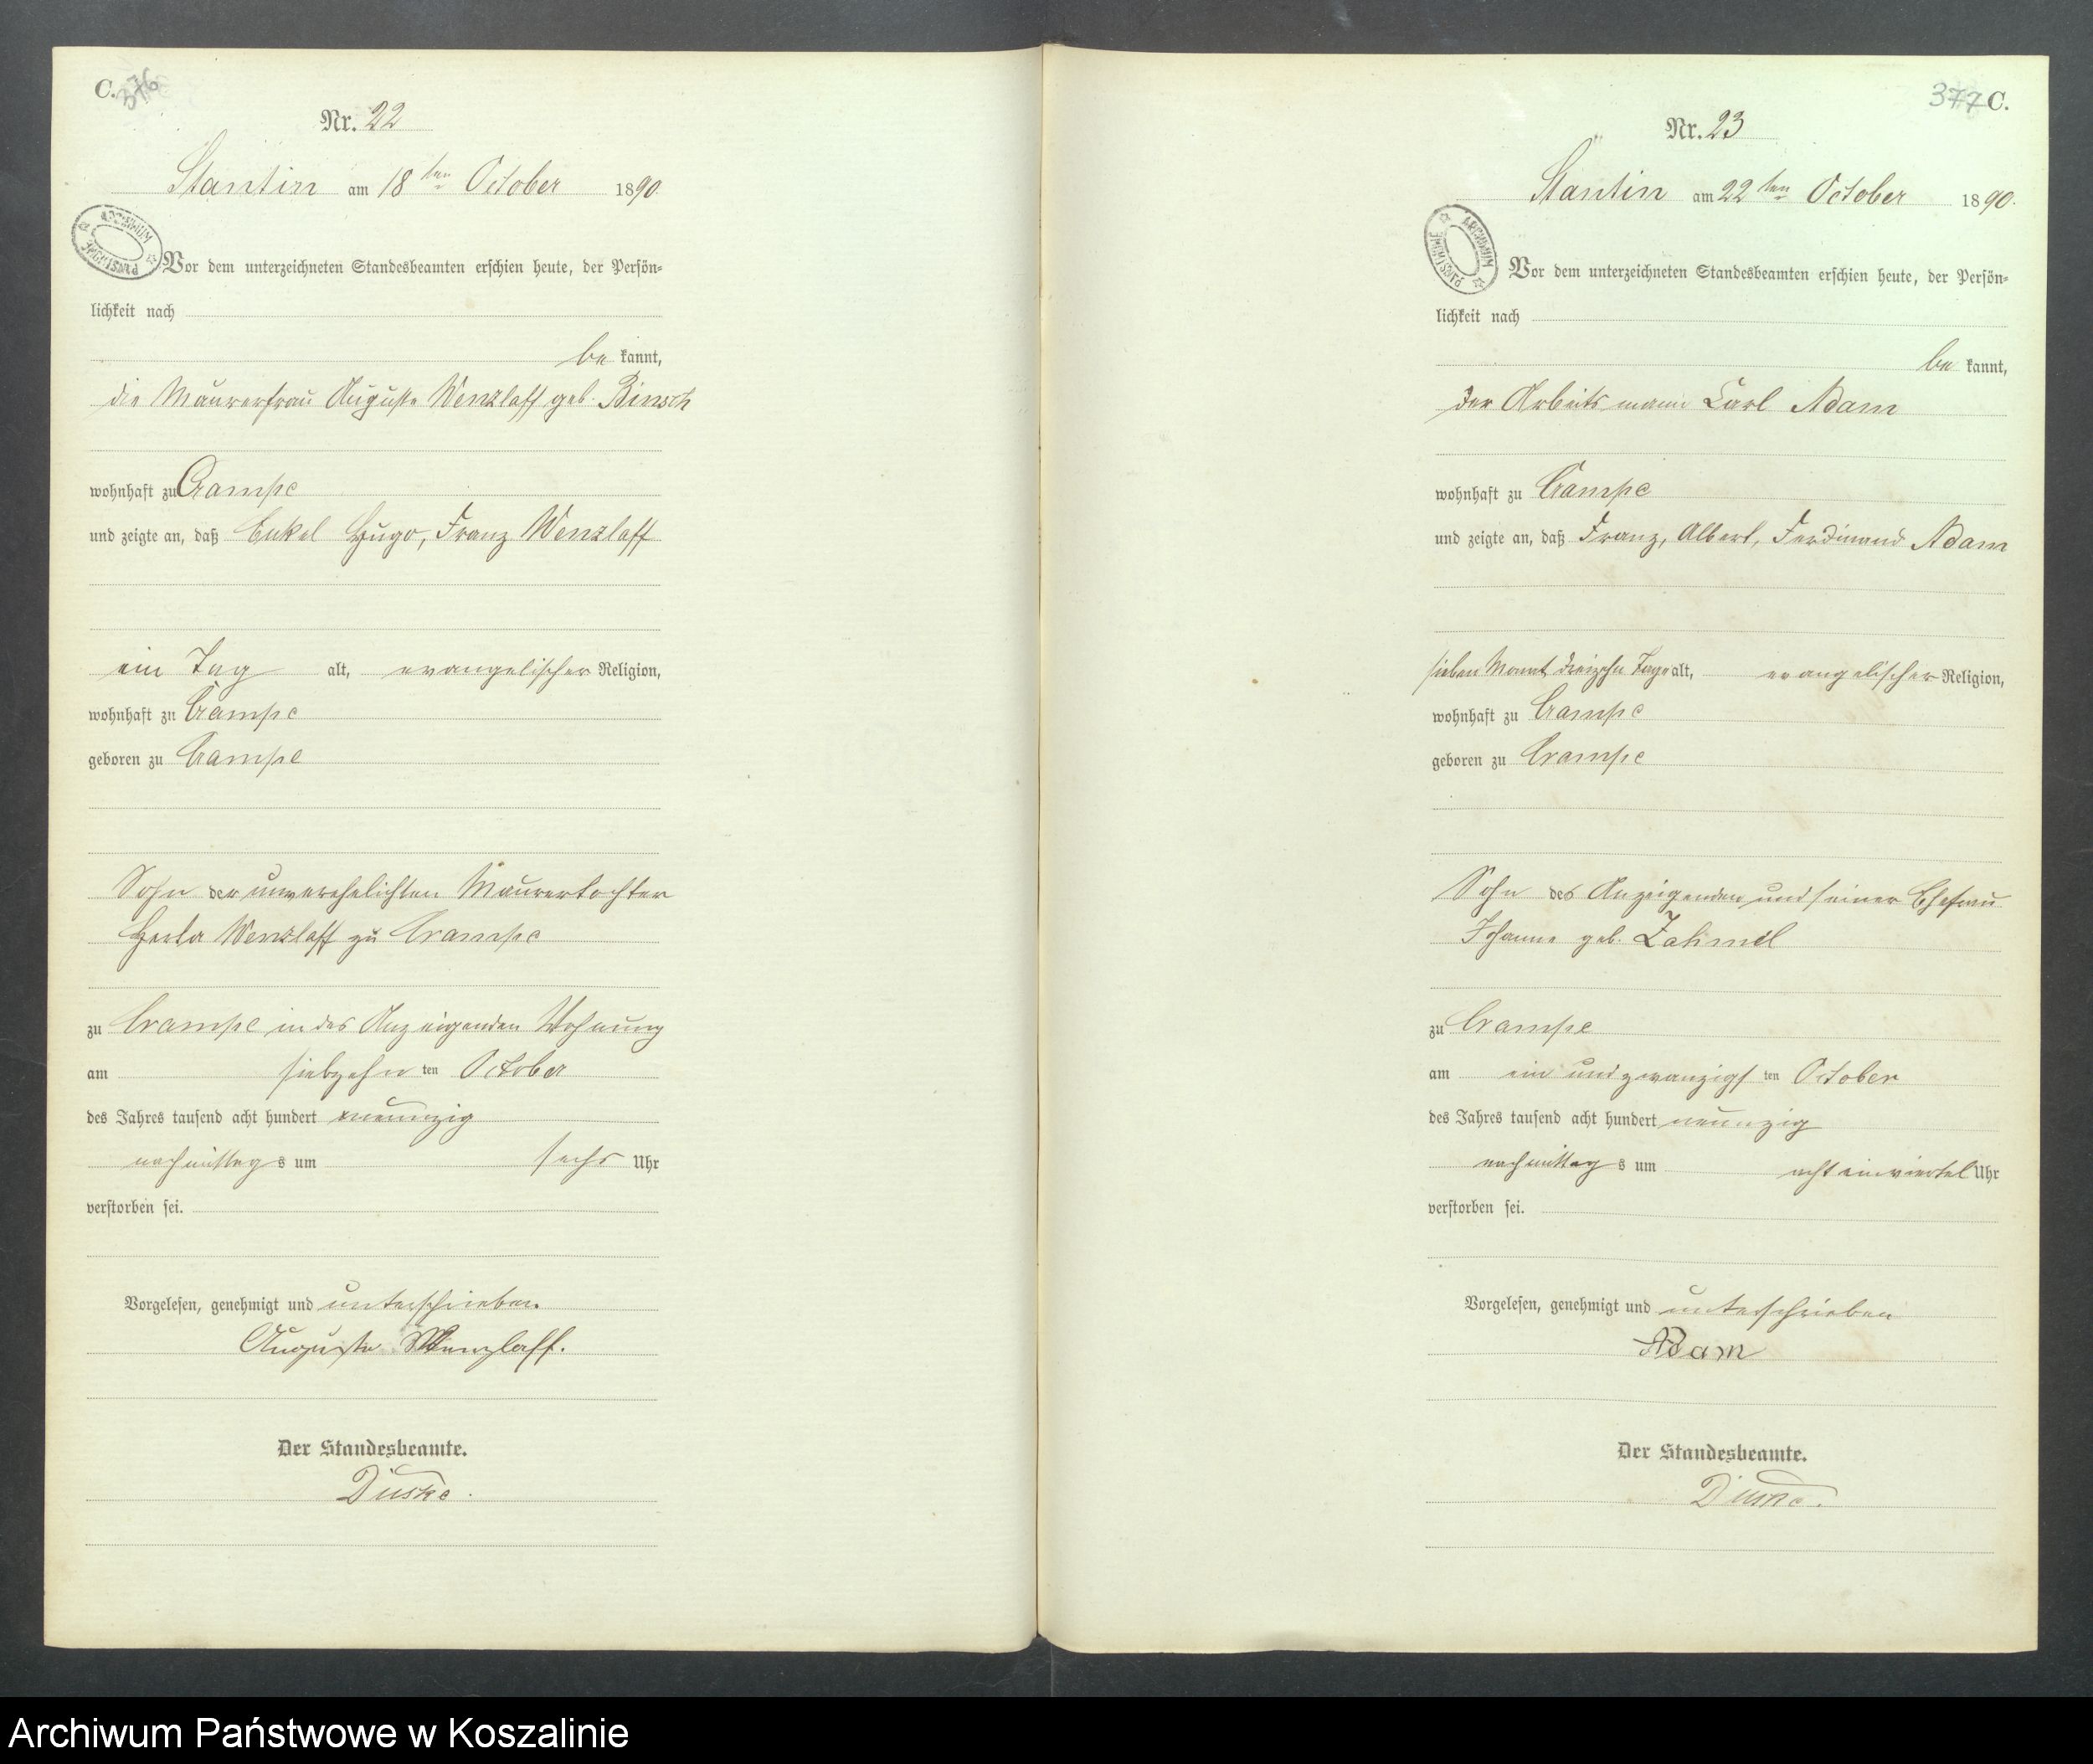 C.
376
Nr. 22
Stantin am 18ten October 1890.
ARCHIWUM PAŃSTWOWE
Vor dem unterzeichneten Standesbeamten erschien heute, der Persön-
lichkeit nach
be kannt,
die Maurerfrau Auguste Wenzlaff geb. Binsch
wohnhaft zu Crampe
und zeigte an, daß Enkel Hugo, Franz Wenzlaff
ein Tag alt, evangelischer Religion,
wohnhaft zu Crampe
geboren zu Crampe
Sohn der unverehelichten Maurertochter
Wenzlaff zu Crampe
zu Crampe in des Anzeigenden Wohnung
am siebzehn ten October
des Jahres tausend acht hundert neunzig
nachmittag s um sechs Uhr
verstorben sei.
Vorgelesen, genehmigt und unterschrieben.
Auguste Wenzlaff.
Der Standesbeamte.
377 C.
Nr. 23
Stantin am 22ten October 1890.
ARCHIWUM PAŃSTWOWE
Vor dem unterzeichneten Standesbeamten erschien heute, der Persön-
lichkeit nach
be kannt,
der Arbeitsmann Carl Adam
wohnhaft zu Crampe
und zeigte an, daß Franz, Albert, Ferdinand Adam
sieben Monat dreizehn Tage alt, evangelischer Religion,
wohnhaft zu Crampe
geboren zu Crampe
Sohn des Anzeigenden und seiner Ehefrau
Johanne geb.
zu Crampe
am ein und zwanzigs ten October
des Jahres tausend acht hundert neunzig
nachmittag s um acht einviertel Uhr
verstorben sei.
Vorgelesen, genehmigt und unterschrieben
Adam
Der Standesbeamte.
Archiwum Państwowe w Koszalinie